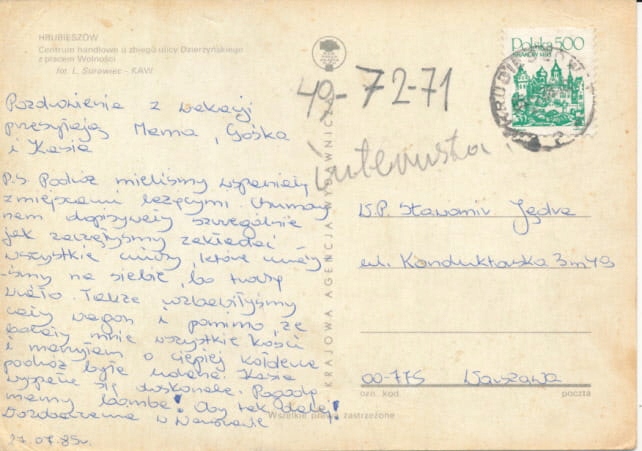 HRUBIESZÓW
Centrum handlowe u zbiegu ulicy Dzierżyńskiego
z placem Wolności
fot. L. Surowiec - KAW
Pozdrowienia z wakacji
przesyłają Mama, Gośka
i Kasia
P.S. Podróż mieliśmy wspaniałą
z miejscami leżącymi. Humory
nam dopisywały szczególnie
jak zaczęłyśmy zakładać
wszystkie ciuchy, które miały-
śmy na siebie, bo
wiało. Także
cały wagon i pomimo, że
bolały mnie wszystkie kości
i marzyłam o ciepłej kołderce
podróż była udana. Kasia
wyspała się doskonale. Pogodę
mamy bombę! Oby tak dalej!
Do zobaczenia w Warszawie
27.07.85r.
KRAJOWA AGENCJA WYDAWNICZA
49-72-71
internista
Polska 500
HRUBIESZÓW
W.P. Sławomir
ul. Konduktorska 3 m 49
00-775 Warszawa
ozn. kod poczta
Wszelkie prawa zastrzeżone